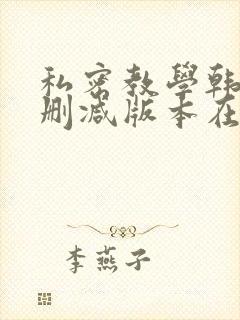 私密教學韩
删减版本在
李燕子